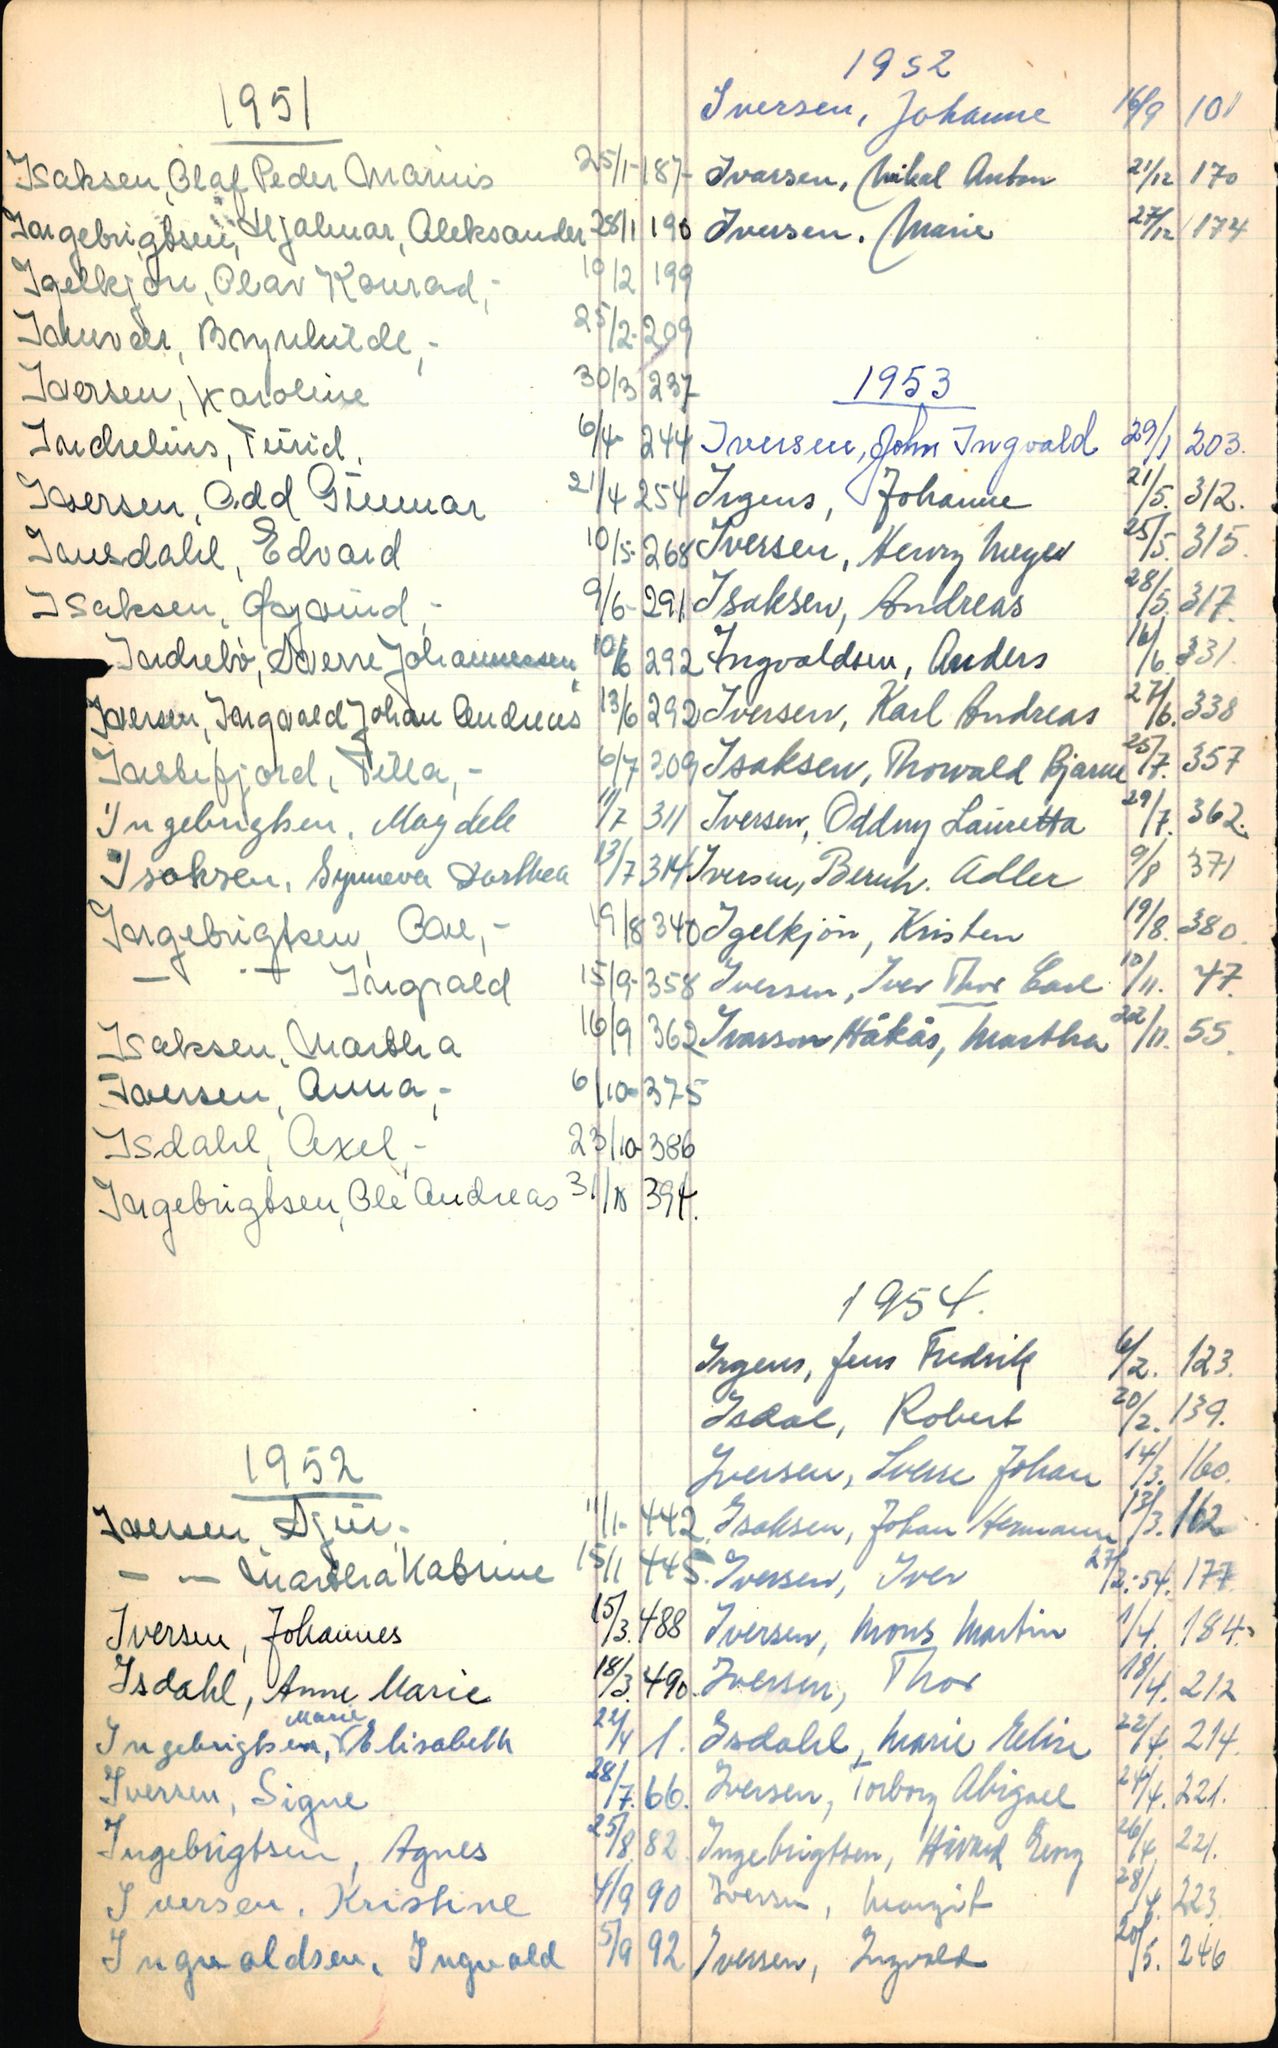 1951
Isaksen, Olaf Peder Marius 25/1- 187-
Ingebrigtsen, Hjalmar, Aleksander 28/1 190
Igelkjøn, Olav Konrad,- 10/2 199
Brynhilde,- 25/2- 209
Iversen, Karoline 30/3 237
Indrelius, Turid, 6/4- 244
Iversen, Odd Gunnar 21/4 254
Edvard 10/5- 268
Isaksen, Øyvind,- 9/6- 291
Indrebö, Sverre Johannessen 10/6 292
Iversen, Ingvald Johan Andreas 13/6 292
Instefjord, Tilla,- 6/7 309
Ingebrigtsen, Magdele 11/7 311
Isaksen, Synneva Dorthea 13/7 314
Ingebrigtsen, Ove,- 19/8 340
— " — Ingvald 15/9- 358
Isaksen, Martha 16/9 362
Iversen, Anna,- 6/10- 375
Isdahl, Axel,- 23/10- 386
Ingebrigtsen, Ole Andreas 31/10 394.
1952
Iversen, 11/1- 442
— — Martha Katrine 15/1 445.
Iversen, Johannes 15/3. 488
Isdahl, Anne Marie 18/3. 490.
Ingebrigtsen, Marie Elisabeth 22/4 1.
Iversen, Signe 28/7. 66.
Ingebrigtsen, Agnes 25/8. 82
Iversen, Kristine 4/9 90
Ingvaldsen, Ingvald 5/9 92
1952
Iversen, Johanne 16/9 101
Ivarsen, Mikal Anton 21/12 170
Iversen, Marie 27/12 174
1953
Iversen, John Ingvald 29/1 203.
Irgens, Johanne 21/5. 312.
Iversen, Henry Meyer 25/5. 315.
Isaksen, Andreas 28/5. 317.
Ingvaldsen, Anders 16/6. 331.
Iversen, Karl Andreas 27/6. 338
Isaksen, Thorvald Bjarne 25/7. 357
Iversen, Oddny Lauretta 29/7. 362.
Iversen, Bernh. Adler 9/8 371
Igelkjön, Kristen 19/8. 380.
Iversen, Iver Thor Earl 10/11. 47.
Ivarson Håkås, Martha 22/11. 55.
1954.
Irgens, Jens Fredrik 6/2. 123.
Isdal, Robert 20/2. 139.
Iversen, Sverre Johan 14/3. 160.
Isaksen, Johan Hermann 13/3. 162
Iversen, Iver 27/2.-54. 177.
Iversen, Mons Martin 1/4. 184.
Iversen, Thor 18/4. 212
Isdahl, Marie Elise 22/4. 214.
Iversen, Torborg Abigael 24/4. 221.
Ingebrigtsen, Håvard Georg 26/4 221.
Iversen, Margit 28/4. 223.
Iversen, Ingvald 20/5. 246